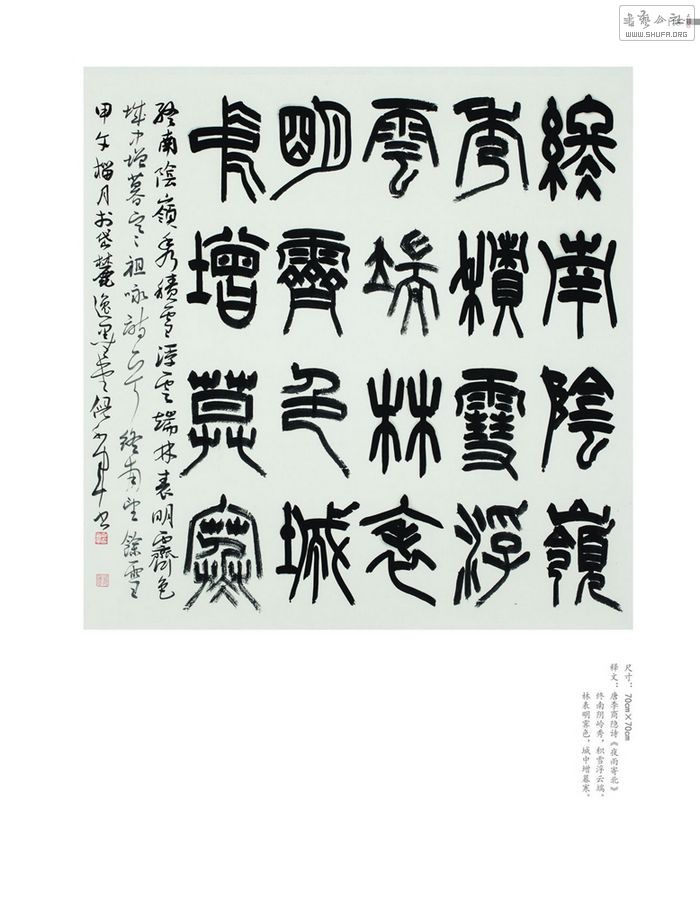 書藝公社
WWW.SHUFA.ORG
終南陰嶺
秀積雪浮
雲端林表
明霽色城
中增莫寒
終南陰嶺秀積雪浮雲端林表明霽色
城中增暮寒 祖咏詩 終南望餘雪
甲午榴月於岱麓逸墨堂 書
尺寸：70cm×70cm
释文：唐李商隐诗《夜雨寄北》
终南阴岭秀，积雪浮云端。
林表明霁色，城中增暮寒。